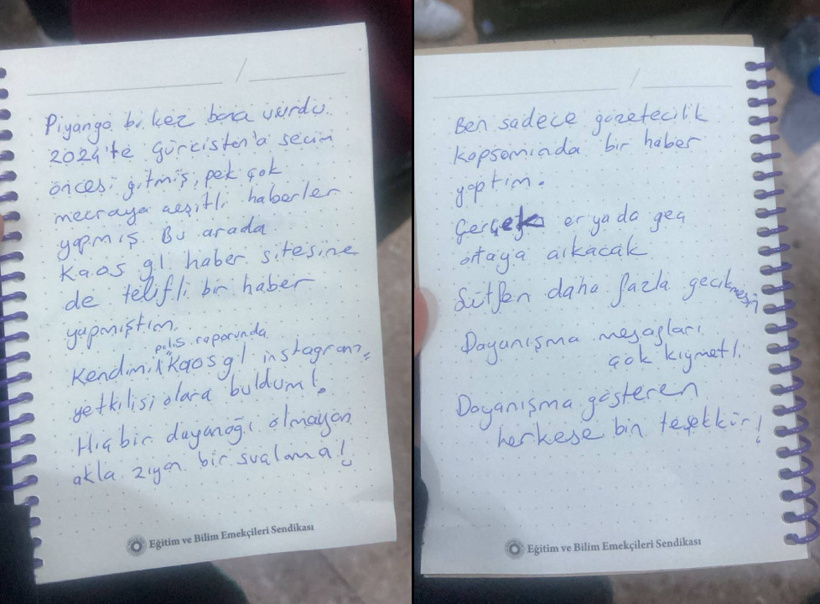 Piyango bu kez bana vurdu.
2024'te Gürcistan'a seçim
öncesi gitmiş, pek çok
mecraya çeşitli haberler
yapmış. Bu arada
Kaos gl haber sitesine
de telifli bir haber
yapmıştım.
polis raporunda
Kendimi Kaos gl instagram
yetkilisi olara buldum!
Hiçbir dayanağı olmayan
akla ziyan bir suçlama!
Eğitim ve Bilim Emekçileri Sendikası
Ben sadece gazetecilik
kapsamında bir haber
yaptım.
Gerçek er ya da geç
ortaya çıkacak
Lütfen daha fazla gecikmesin
Dayanışma mesajları
çok kıymetli.
Dayanışma gösteren
herkese bin teşekkür!
Eğitim ve Bilim Emekçileri Sendikası